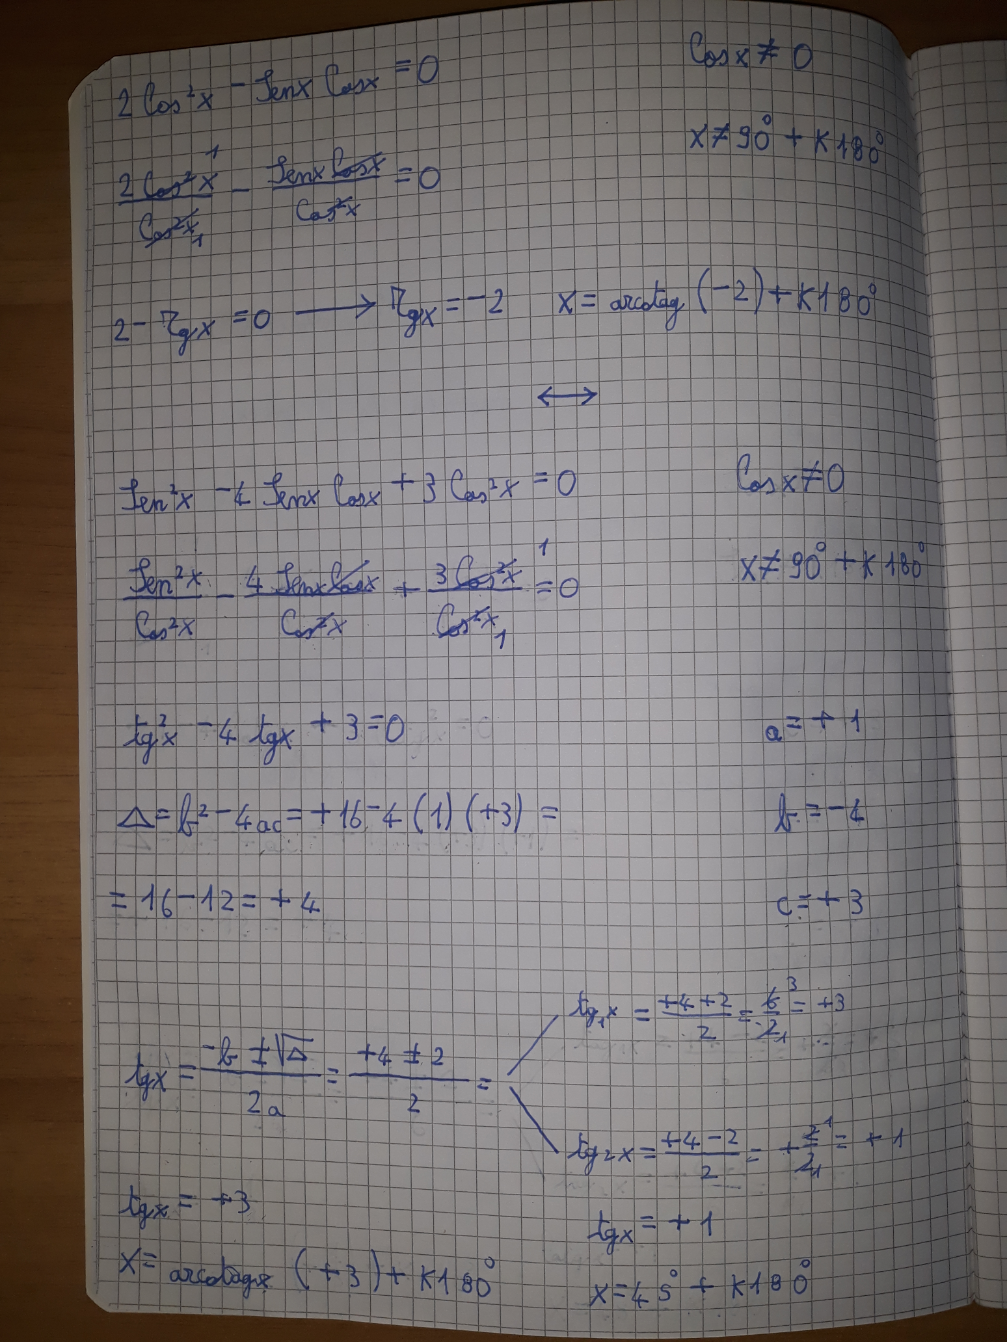 2 Cos²x - Senx Cosx = 0    Cosx ≠ 0
x ≠ 90° + K180°
2 Cos²x / Cos²x - Senx Cosx / Cos²x = 0
2 - Tgx = 0 → Tgx = -2    x = arcotag (-2) + K180°
↔
Sen²x - 4 Senx Cosx + 3 Cos²x = 0    Cosx ≠ 0
Sen²x / Cos²x - 4 Senx Cosx / Cos²x + 3 Cos²x / Cos²x = 0    x ≠ 90° + K180°
tg²x - 4 tgx + 3 = 0    a = + 1
Δ = b² - 4ac = +16 - 4 (1) (+3) =    b = -4
= 16 - 12 = + 4    c = + 3
tg₁x = +4+2 / 2 = 6 / 2 = +3
tgx = -b ± √Δ / 2a = +4 ± 2 / 2 =
tg₂x = +4-2 / 2 = + 2 / 2 = + 1
tgx = +3    tgx = + 1
x = arcotagx (+3) + K180°    x = 45° + K180°